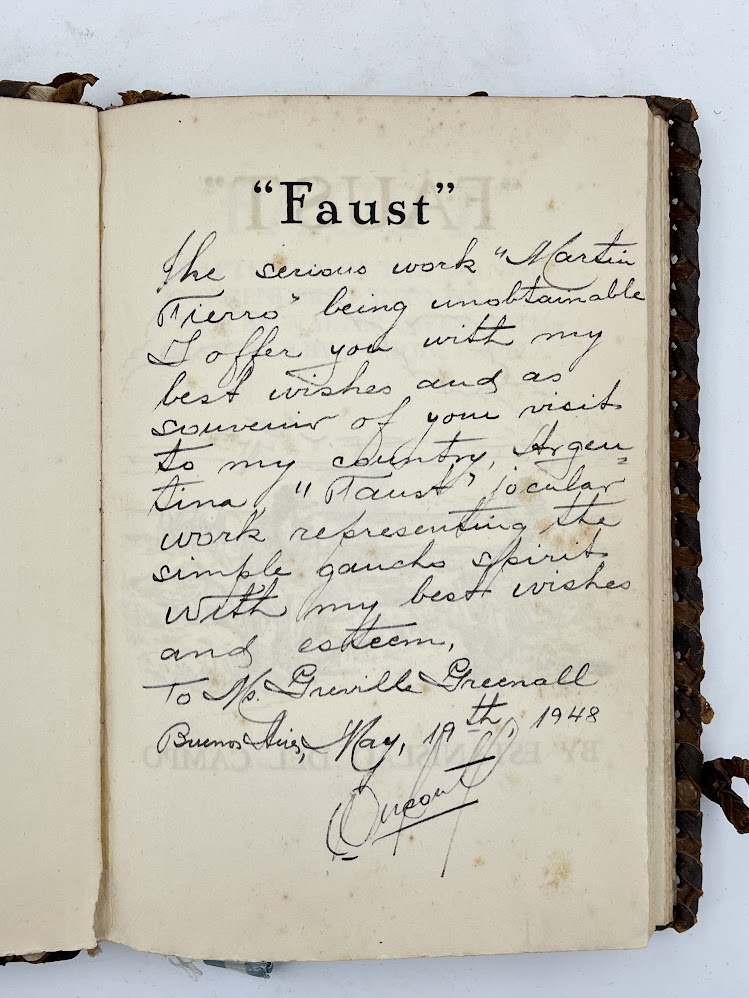 “Faust”
The serious work "Martin
Fierro" being unobtainable
I offer you with my
best wishes and as
souvenir of your visit
to my country, Argen=
tina, "Faust" jocular
work representing the
simple gaucho spirit
with my best wishes
and esteem,
To Mr. Greville Greenall
Buenos Aires, May, 19th, 1948
"FAUST"
BY ESTANISLAO DEL CAMPO